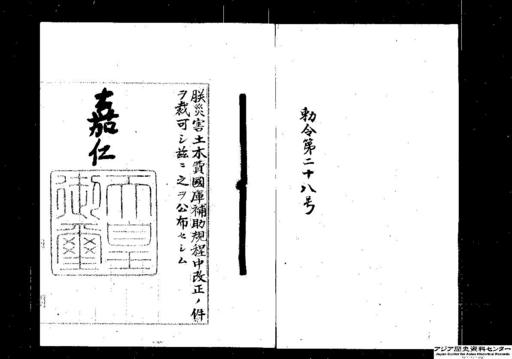 勅令第二十八号
朕災害土木費國庫補助規程中改正ノ件
ヲ裁可シ茲ニ之ヲ公布セシム
嘉仁
天皇
御璽
アジア歴史資料センター
Japan Center for Asian Historical Records